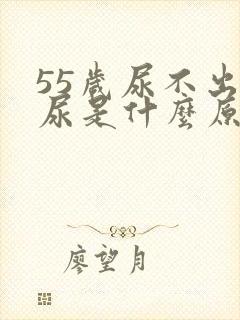 55歲尿不出
尿是什麼原
廖望月